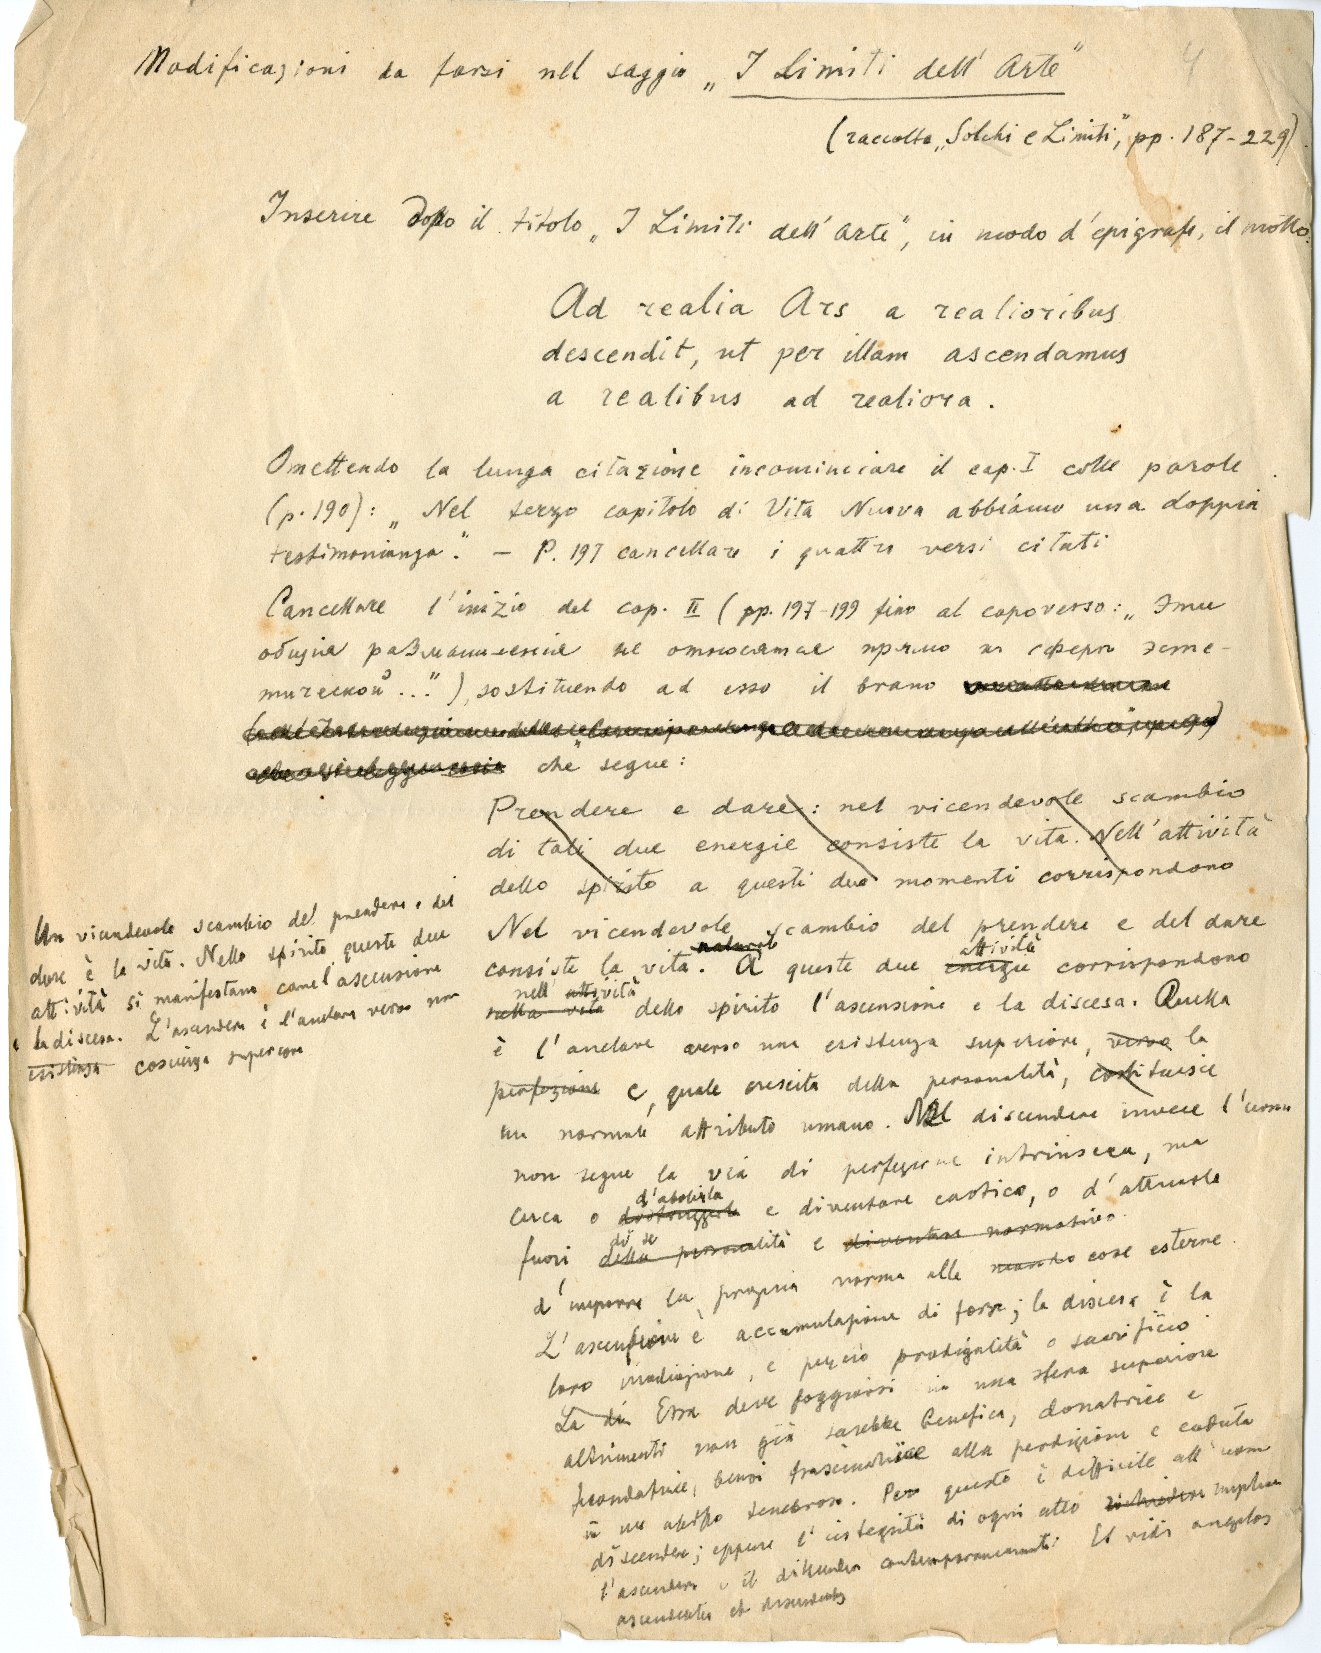 Modificazioni da farsi nel saggio „I Limiti dell' Arte"
4
(raccolta „Solchi e Limiti", pp. 187-229)
Inserire dopo il titolo „I Limiti dell' Arte", in modo d'epigrafe, il motto:
Ad realia Ars a realioribus
descendit, ut per illam ascendamus
a realibus ad realiora.
Omettendo la lunga citazione incominciare il cap. I colle parole
(p. 190): „Nel terzo capitolo di Vita Nuova abbiamo una doppia
testimonianza". — P. 197 cancellare i quattro versi citati
Cancellare l'inizio del cap. II (pp. 197-199 fino al capoverso: „Эти
общия размышления не относятся прямо к сфере эсте-
тической..."), sostituendo ad esso il brano
che segue:
Prendere e dare: nel vicendevole scambio
di tali due energie consiste la vita. Nell'attività
dello spirito a questi due momenti corrispondono
Nel vicendevole scambio del prendere e del dare
naturale
attività
consiste la vita. A queste due energie corrispondono
nell' attività
nella vita dello spirito l'ascensione e la discesa. Quella
è l'anelare verso una esistenza superiore, verso la
perfezione e, quale crescita della personalità, costituisce
un normale attributo umano. Nel discendere invece l'uomo
non segue la via di perfezione intrinseca, ma
d'abolirla
cerca o distruggerla e diventare caotico, o d'attuarla
di se
fuori della personalità e diventare normativo.
d'imporre la propria norma alle mondo cose esterne.
L'ascensione è accumulazione di forze; la discesa è la
loro irradiazione, e perciò prodigalità o sacrificio.
La di Essa deve foggiarsi in una sfera superiore
altrimenti non già sarebbe benefica, donatrice e
fecondatrice, bensì trascinatrice alla perdizione e caduta
in un abisso tenebroso. Per questo è difficile all'uom
discendere; eppure l'integrità di ogni atto richiedere implica
l'ascendere e il discendere contemporaneamente: Et vidi angelos
ascendentes et descendentes
Un vicendevole scambio del prendere e del
dare è la vita. Nello spirito queste due
attività si manifestano come l'ascensione
e la discesa. L'ascendere è l'anelare verso una
esistenza coscienza superiore